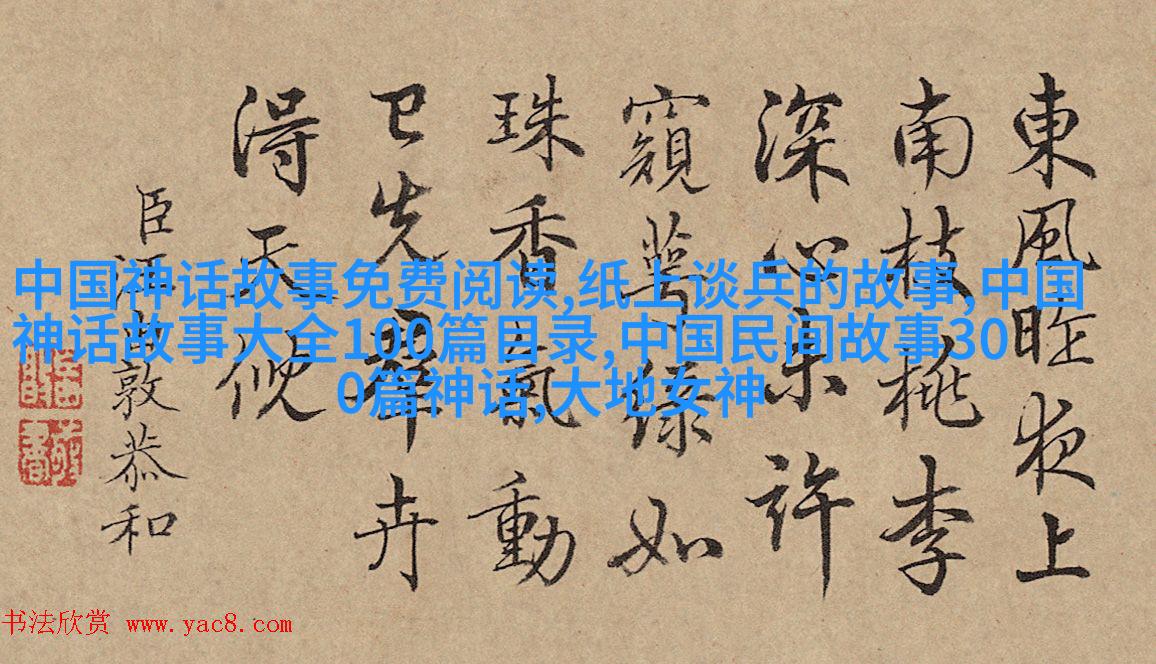 東風昨夜上
南枝桃李
深心未許
窺萼綠如
珠香氣動
已先羣卉
得天倪
臣汪由敦恭和
中国神话故事免费阅读,纸上谈兵的故事,中国
神话故事大全100篇目录,中国民间故事30
0篇神话,大地女神
书法欣赏 www.yac8.com